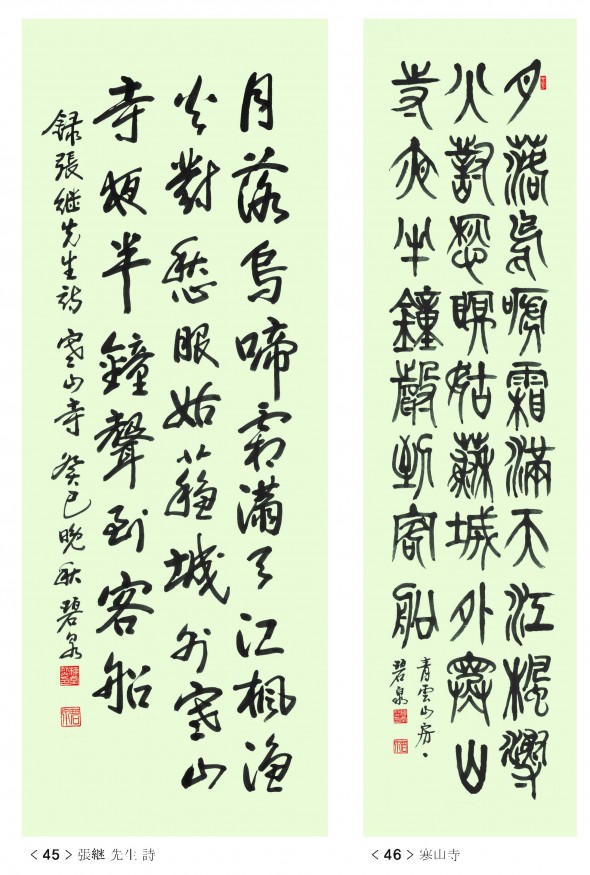 月落烏啼霜滿天江楓漁
火對愁眠姑蘇城外寒山
寺夜半鐘聲到客船
録張継先生詩 寒山寺 癸巳晩秋 碧泉
< 45 > 張継 先生 詩
月落烏啼霜滿天江楓漁
火對愁瞑姑蘇城外寒山
寺夜半鐘聲到客船
青雲山房
碧泉
< 46 > 寒山寺